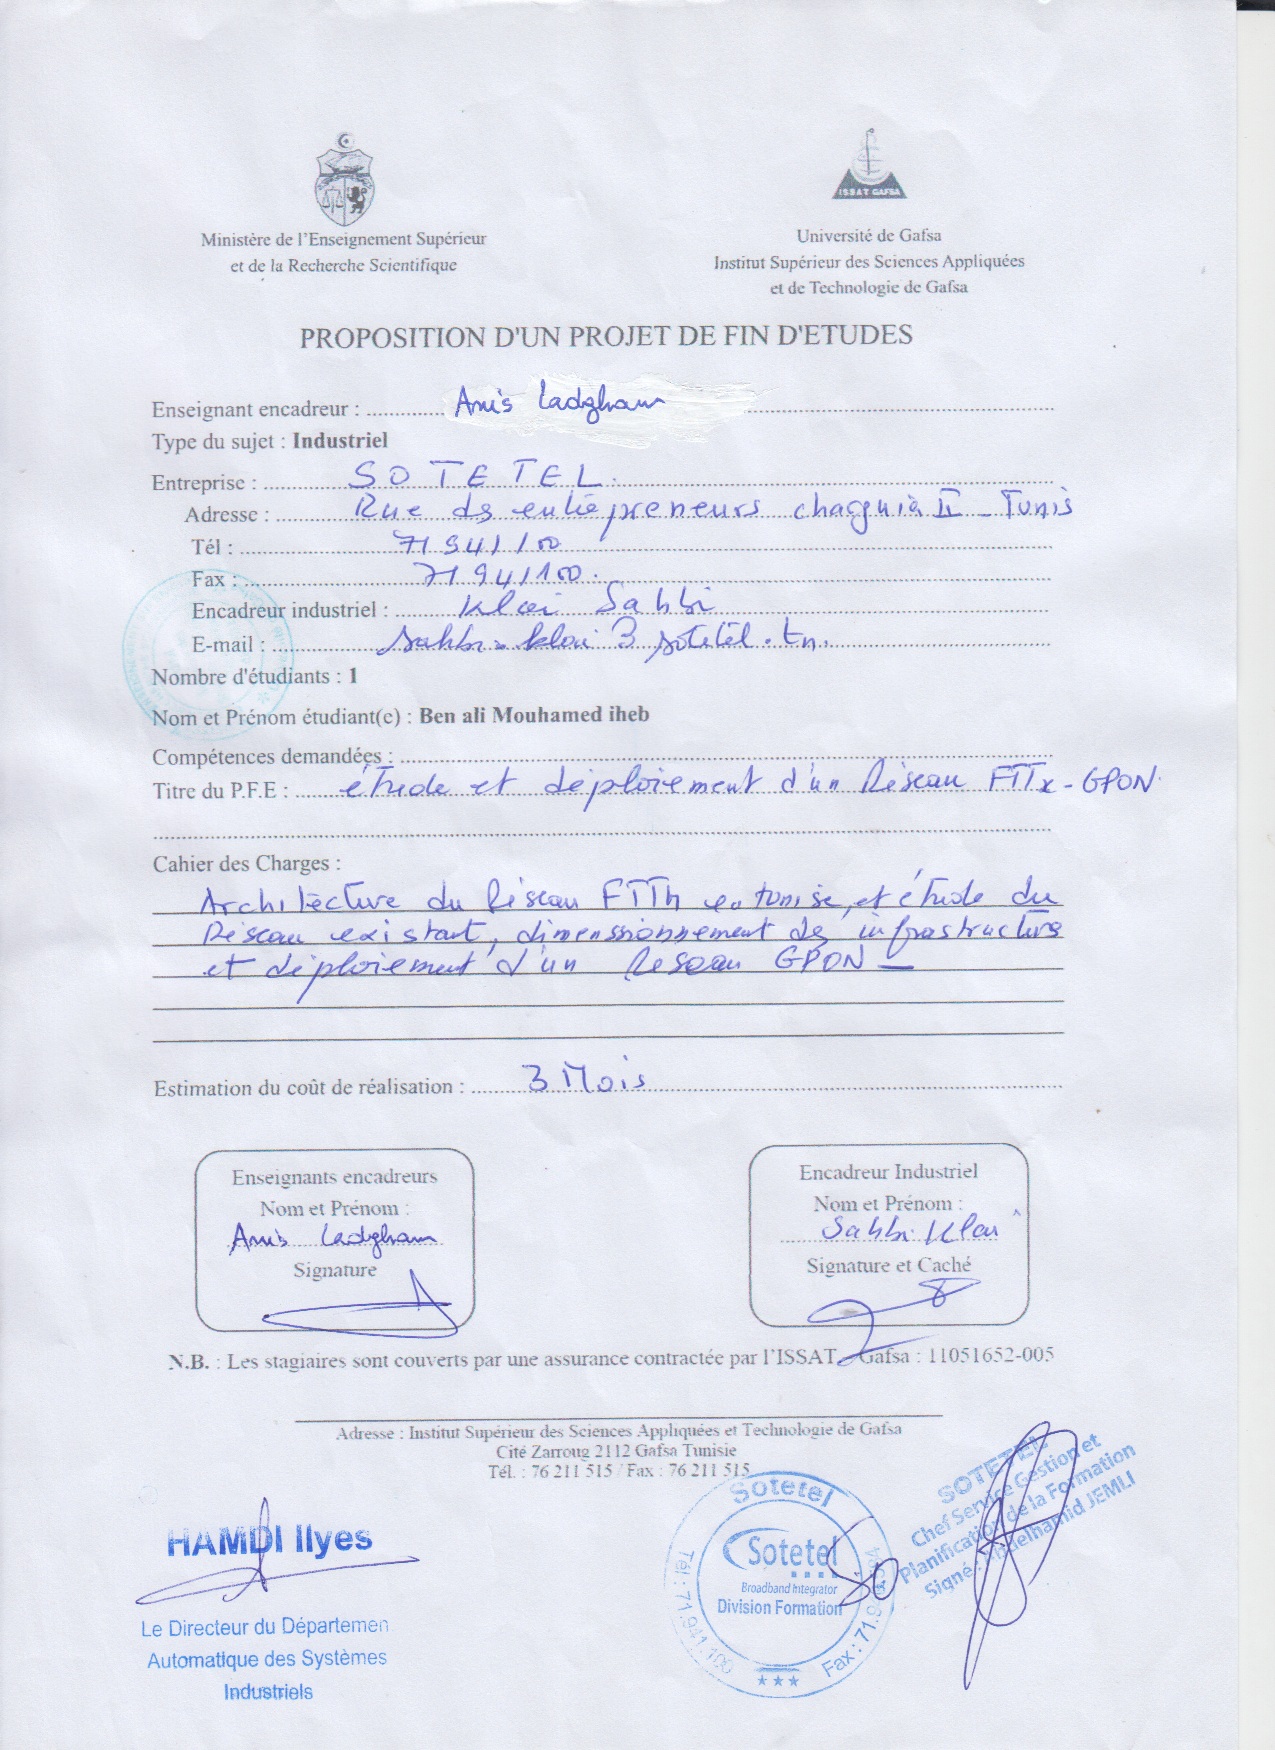 ISSAT GAFSA
Ministère de l'Enseignement Supérieur
et de la Recherche Scientifique
Université de Gafsa
Institut Supérieur des Sciences Appliquées
et de Technologie de Gafsa
PROPOSITION D'UN PROJET DE FIN D'ETUDES
Enseignant encadreur : Anis Ladgham
Type du sujet : Industriel
Entreprise : SOTETEL
Adresse : Rue des entrepreneurs charguia II - Tunis
Tél : 71 941 100
Fax : 71 941 100.
Encadreur industriel : Klai Sahbi
E-mail : sotetel.tn.
Nombre d'étudiants : 1
Nom et Prénom étudiant(e) : Ben ali Mouhamed iheb
Compétences demandées :
Titre du P.F.E : étude et déploiement d'un Réseau FTTx-GPON
Cahier des Charges :
Architecture du Réseau FTTh en tunisie, et étude du
Réseau existant, dimenssionnement des infrastructure
et déploiement d'un Reseau GPON
Estimation du coût de réalisation : 3 Mois
Enseignants encadreurs
Nom et Prénom :
Anis Ladgham
Signature
Encadreur Industriel
Nom et Prénom :
Sahbi Klai
Signature et Caché
N.B. : Les stagiaires sont couverts par une assurance contractée par l'ISSAT Gafsa : 11051652-005
Adresse : Institut Supérieur des Sciences Appliquées et Technologie de Gafsa
Cité Zarroug 2112 Gafsa Tunisie
Tél. : 76 211 515 / Fax : 76 211 515
HAMDI Ilyes
Le Directeur du Départemen
Automatique des Systèmes
Industriels
Sotetel
Sotetel
Broadband Integrator
Division Formation
Tél : 71.941.100
Fax : 71.9
SOTETEL
Chef Service Gestion et
Planification de la Formation
Signé : Abdelhamid JEMLI